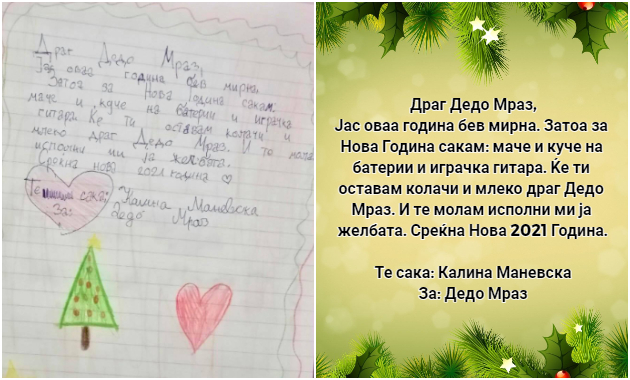 Драг Дедо Мраз,
Јаз оваа година бев мирна.
Затоа за Нова Година сакам
маче и куче на батерии и играчка
гитара. Ќе ти оставам колачи и
млеко драг Дедо Мраз. И те молам
исполни ми ја желбата.
Среќна нова 2021 година
Те сака: Калина Маневска
За: Дедо Мраз
Драг Дедо Мраз,
Јас оваа година бев мирна. Затоа за
Нова Година сакам: маче и куче на
батерии и играчка гитара. Ќе ти
оставам колачи и млеко драг Дедо
Мраз. И те молам исполни ми ја
желбата. Среќна Нова 2021 Година.
Те сака: Калина Маневска
За: Дедо Мраз